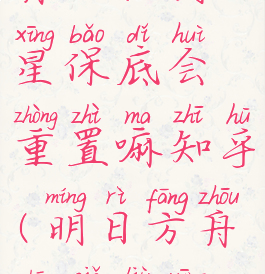 xīng bǎo dǐ huì
星保底会
zhòng zhì ma zhī hū
重置嘛知乎
míng rì fāng zhōu
(明日方舟